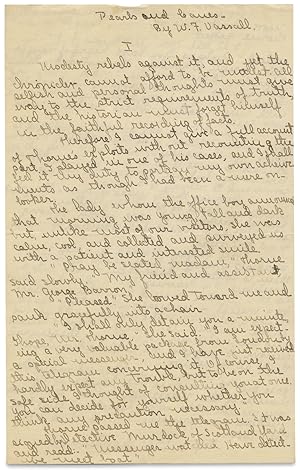 Pearls and Canes.
By W. F. Vassall.
I
Modesty rebels against it, and yet the
chronicler cannot afford to be modest, all
selfish and personal thoughts must give
way to the strict requirements of truth,
and the historian must forget himself
in the faithful recording of facts.
Therefore I cannot give a full account
of Thorne's exploits without recounting the
part I played in one of his cases, and I shall
feel it my duty to portray my own achieve
ments as though I had been a mere on-
looker.
The lady whom the office boy announced
that morning was young, tall and dark
but unlike most of our visitors, she was
calm, cool and collected and surveyed us
with a patient and interested smile
"Pray be seated, madam," Thorne
said slowly. "My friend and assistant
Mr. George Barron."
"Pleased." She bowed toward me and
sank gracefully into a chair.
"I shall only detain you a minute,
I hope, Mr. Thorne," she said. "I am expect-
ing a very valuable package from London by
a special messenger, and I have just received
this telegram concerning it. Of course, I
hardly expect any trouble, but to be on the
safe side I thought of consulting you at once.
you can decide for yourself whether you
think any precaution necessary
Thorne passed me the telegram. It was
signed Detective Murdock of Scotland Yard
and read: "Messenger
meet boat."